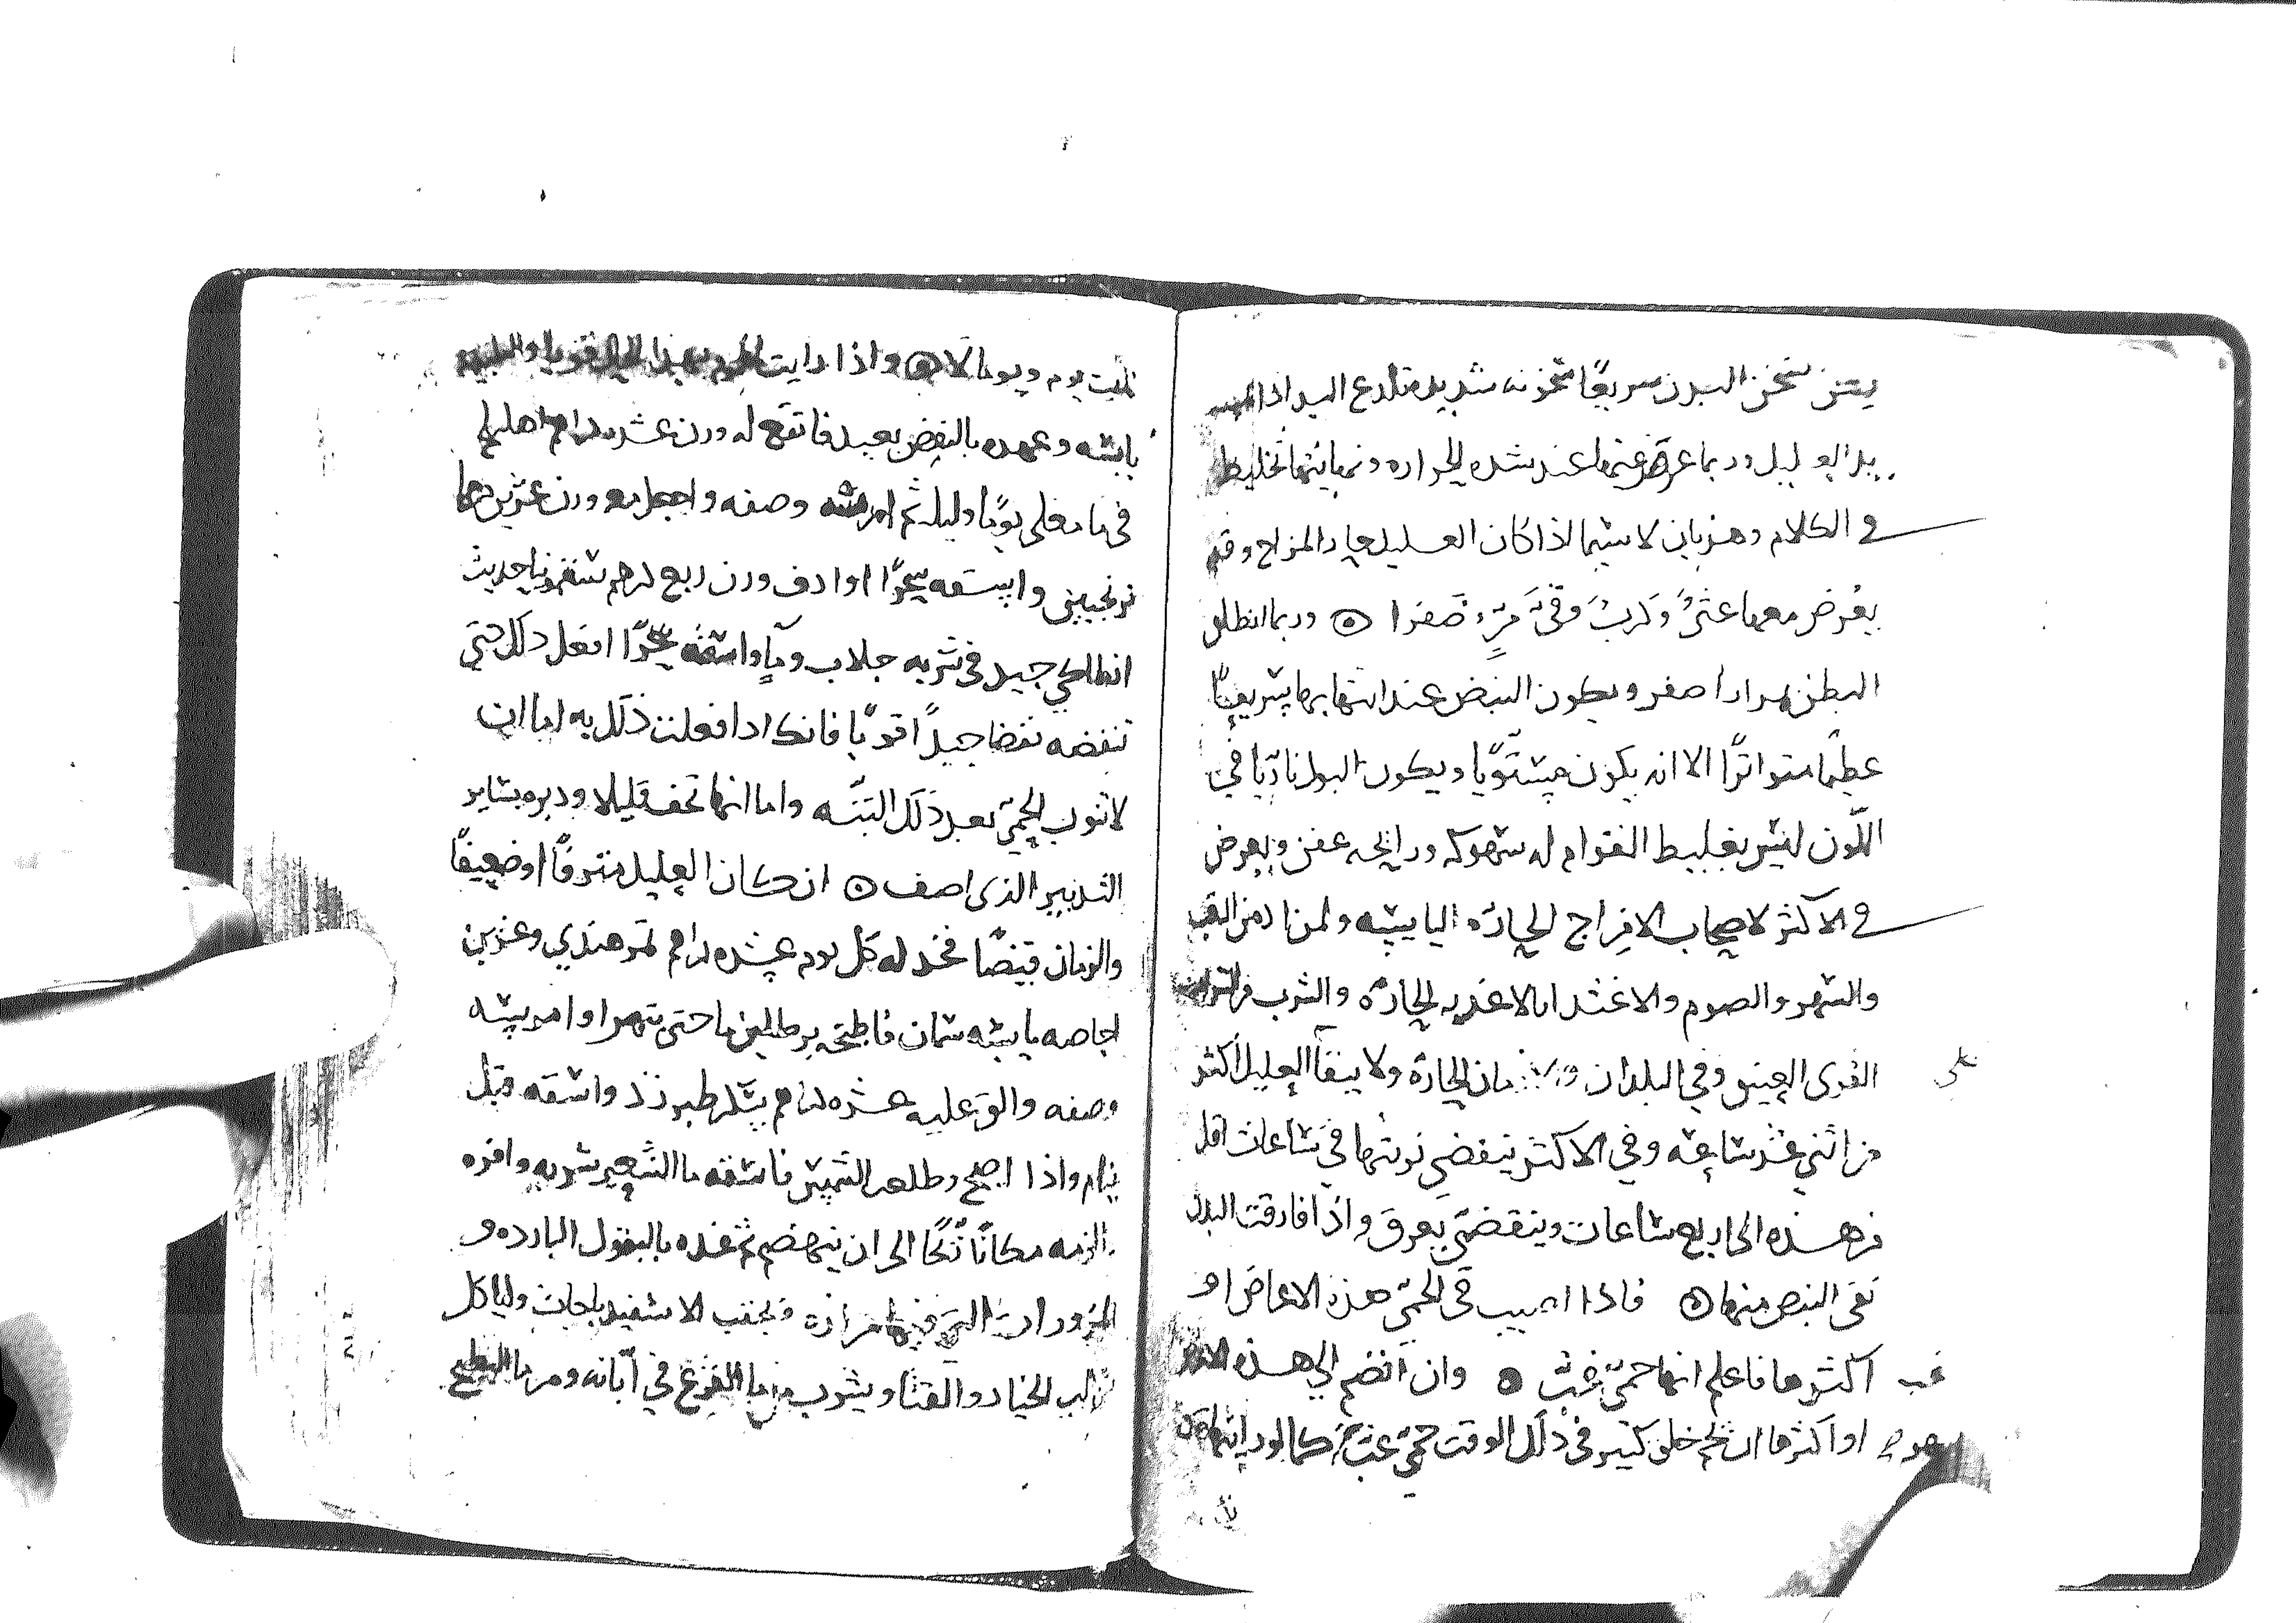 يسخن البدن سريعًا سخونه شديده تلدع اليد اذا
بدا الو ليل وربما عرض عنها عند شده الحراره ونهايتها تخليط
في الكلام وهذيان لا سيما اذا كان العليل حار المزاج وقد
يعرض معها غثي وكرب وقيء مره صفرا ۞ وربما انطلق
البطن مرارا اصفر ويكون النبض عند انتهايها سريعًا
عظيمًا متواترًا الا انه يكون مستويًا ويكون البول ناريا في
اللون ليس بغليط القوام له سهوكه ورايحه عفن ويعرض
في الاكثر لاصحاب الامزاج الحارّه اليابسه ولمن ادمن التعب
والسهر والصوم والاغتدا بالاغذيه الحارّه والشرب
القوى العتيق وفي البلدان والازمان الحارّه ولا يبقا العليل اكثر
من اثني عشر ساعه وفي الاكثر ينقضي نوبتها في ساعات اقل
من هذه الى اربع ساعات وينقضي بعرق واذا فارقت البدن
نقى النبض منها ۞ فاذا اصيب في الحمى هذه الاعراض او
اكثرها فاعلم انها حمّى غبّ ۞ وان انضم الى هذه
او اكثرها ان يحم خلق كثير في ذلك الوقت حمّى غبّ كما
تلبث يوم ويوما لا ۞ واذا رايت
يابسه وعهده بالنفض بعيد فانقع له وزن عشره دراهم اهليلج
في ما مغلى يومًا وليله ثم امرسه وصفه واجعل معه وزن عشرين درهما
ترنجبين واسقه سحرًا او ادف وزن ربع درهم سقمونيا حديث
انطاكي جيد في شربه جلاب وماٍ واسقه سحرًا افعل ذلك حتي
تنفضه نفضا جيدًا قويًا فانك اذا فعلت ذلك به اما ان
لا تنوب الحمّى بعد ذلك البتّه واما انها تخف قليلا ودبره بساير
التدبير الذى اصف ۞ ان كان العليل مترفًا او ضعيفًا
والزمان قيضًا فخد له كل يوم عشره دراهم تمر هندي وعشرين
اجاصه يابسه سمان فاطبخه برطلين ما حتى يتهرا وامرسه
وصفه والق عليه عشره دراهم سكر طبرزد واسقه قبل
ينام واذا اصبح وطلعت الشمس فاسقه ما الشعير شربه وافره
والزمه مكانًا ثلجًا الى ان ينهضم ثم غذه بالبقول البارده و
المزورات التي فيها مرازه ويجنب الاسفيدباجات ولياكل
لب الخيار والقثا ويشرب من ما القرع في ابّانه ومن ما البطيخ